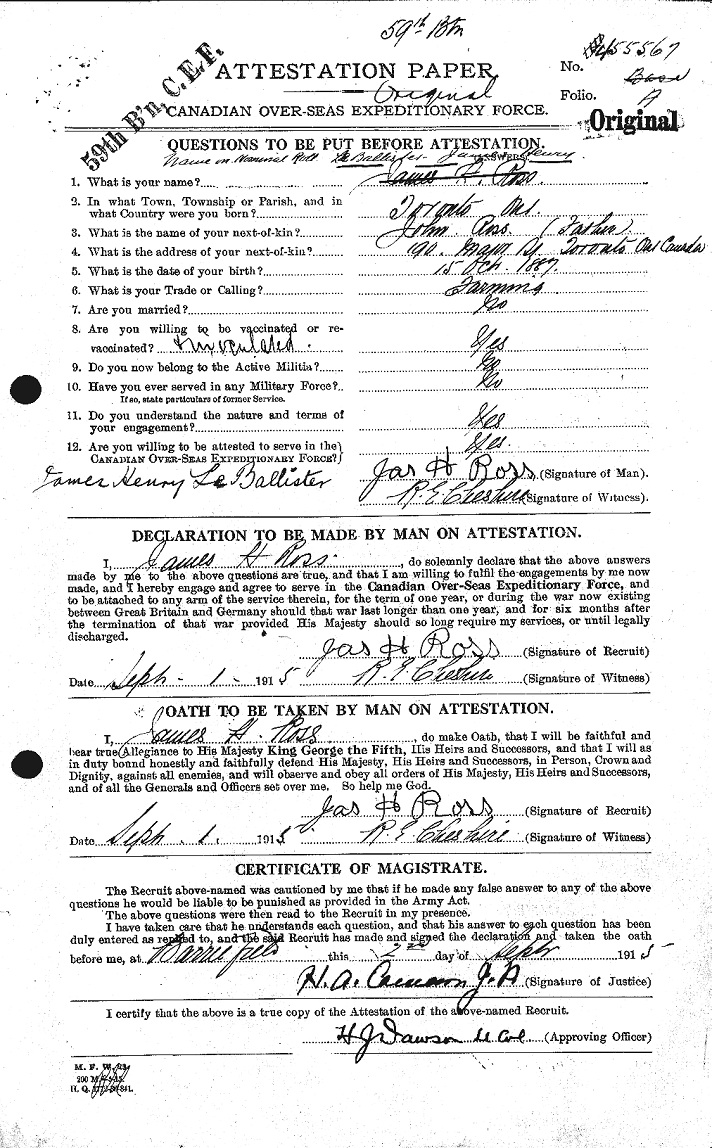 59th Btn
59th B'n, C.E.F.
ATTESTATION PAPER
No. 455567
Original
Folio. A
CANADIAN OVER-SEAS EXPEDITIONARY FORCE.
Original
QUESTIONS TO BE PUT BEFORE ATTESTATION.
Name on Nominal Roll Le Ballister James Henry
1. What is your name? James H. Ross
2. In what Town, Township or Parish, and in
what Country were you born? Toronto Ont.
3. What is the name of your next-of-kin? John Ross (Father)
4. What is the address of your next-of-kin? 190 St Toronto Ont Canada
5. What is the date of your birth? 15 Oct. 1887.
6. What is your Trade or Calling? Farming
7. Are you married? No
8. Are you willing to be vaccinated or re-
vaccinated? & Inoculated. Yes
9. Do you now belong to the Active Militia? No
10. Have you ever served in any Military Force? No
If so, state particulars of former Service.
11. Do you understand the nature and terms of
your engagement? Yes
12. Are you willing to be attested to serve in the
CANADIAN OVER-SEAS EXPEDITIONARY FORCE? Yes
James Henry Le Ballister
Jas H Ross (Signature of Man).
R.E. Cheshire (Signature of Witness).
DECLARATION TO BE MADE BY MAN ON ATTESTATION.
I, James H Ross, do solemnly declare that the above answers
made by me to the above questions are true, and that I am willing to fulfil the engagements by me now
made, and I hereby engage and agree to serve in the Canadian Over-Seas Expeditionary Force, and
to be attached to any arm of the service therein, for the term of one year, or during the war now existing
between Great Britain and Germany should that war last longer than one year, and for six months after
the termination of that war provided His Majesty should so long require my services, or until legally
discharged.
Jas H Ross (Signature of Recruit)
Date Sept. 1. 1915 R.E. Cheshire (Signature of Witness)
OATH TO BE TAKEN BY MAN ON ATTESTATION.
I, James H. Ross, do make Oath, that I will be faithful and
bear true Allegiance to His Majesty King George the Fifth, His Heirs and Successors, and that I will as
in duty bound honestly and faithfully defend His Majesty, His Heirs and Successors, in Person, Crown and
Dignity, against all enemies, and will observe and obey all orders of His Majesty, His Heirs and Successors,
and of all the Generals and Officers set over me. So help me God.
Jas H Ross (Signature of Recruit)
Date Sept. 1. 1915 R.E. Cheshire (Signature of Witness)
CERTIFICATE OF MAGISTRATE.
The Recruit above-named was cautioned by me that if he made any false answer to any of the above
questions he would be liable to be punished as provided in the Army Act.
The above questions were then read to the Recruit in my presence.
I have taken care that he understands each question, and that his answer to each question has been
duly entered as replied to, and the said Recruit has made and signed the declaration and taken the oath
before me, at Barriefield this 2nd day of Septr 1915
H. A. Cameron (Signature of Justice)
I certify that the above is a true copy of the Attestation of the above-named Recruit.
H J Dawson Lt Col (Approving Officer)
M. F. W. 23.
200 M
H. Q.